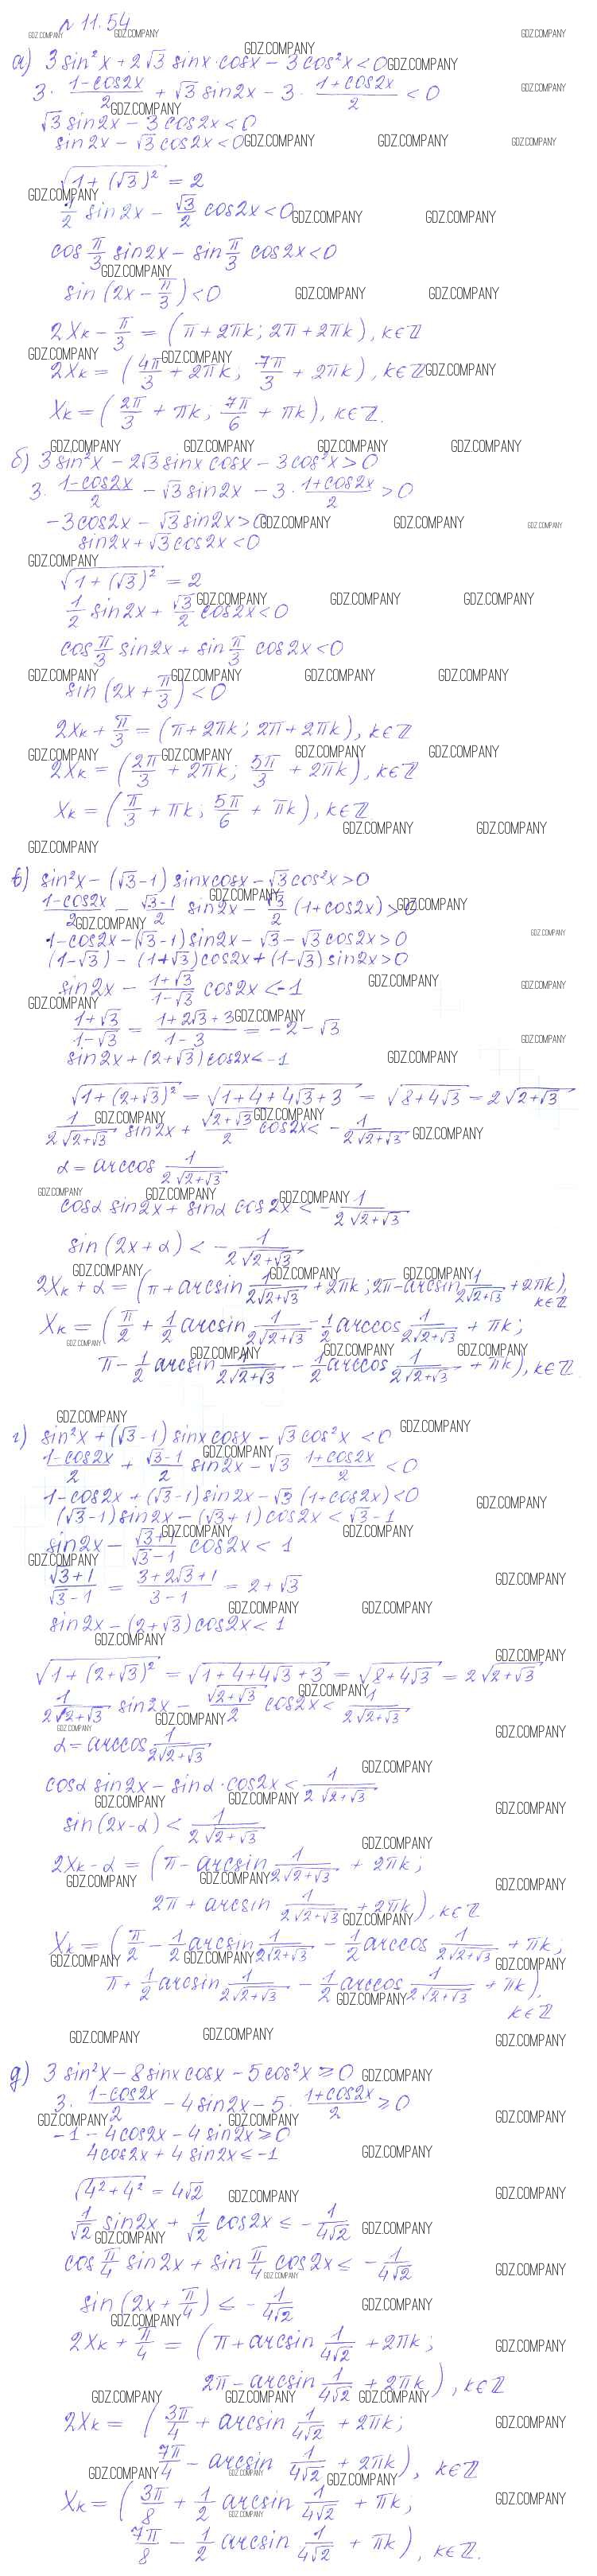 № 11.54
а) 3 sin²x + 2√3 sinx·cosx − 3cos²x < 0
3 · (1−cos2x)/2 + √3 sin2x − 3 · (1+cos2x)/2 < 0
√3 sin2x − 3cos2x < 0
sin2x − √3 cos2x < 0
√(1+(√3)²) = 2
1/2 sin2x − √3/2 cos2x < 0
cos π/3 sin2x − sin π/3 cos2x < 0
sin (2x − π/3) < 0
2Xk − π/3 = (π+2πk; 2π+2πk), k∈ℤ
2Xk = (4π/3 + 2πk; 7π/3 + 2πk), k∈ℤ
Xk = (2π/3 + πk; 7π/6 + πk), k∈ℤ.
б) 3sin²x − 2√3 sinx cosx − 3cos²x > 0
3 · (1−cos2x)/2 − √3 sin2x − 3 · (1+cos2x)/2 > 0
−3cos2x − √3 sin2x > 0
sin2x + √3 cos2x < 0
√(1+(√3)²) = 2
1/2 sin2x + √3/2 cos2x < 0
cos π/3 sin2x + sin π/3 cos2x < 0
sin (2x + π/3) < 0
2Xk + π/3 = (π+2πk; 2π+2πk), k∈ℤ
2Xk = (2π/3 + 2πk; 5π/3 + 2πk), k∈ℤ
Xk = (π/3 + πk; 5π/6 + πk), k∈ℤ
в) sin²x − (√3−1) sinxcosx − √3cos²x > 0
(1−cos2x)/2 − (√3−1)/2 sin2x − √3/2 (1+cos2x) > 0
1−cos2x−(√3−1)sin2x − √3 − √3cos2x > 0
(1−√3) − (1+√3)cos2x + (1−√3)sin2x > 0
sin2x − (1+√3)/(1−√3) cos2x < −1
(1+√3)/(1−√3) = (1+2√3+3)/(1−3) = −2−√3
sin2x + (2+√3)cos2x < −1
√(1+(2+√3)²) = √(1+4+4√3+3) = √(8+4√3) = 2√(2+√3)
1/(2√(2+√3)) sin2x + √(2+√3)/2 cos2x < − 1/(2√(2+√3))
α = arccos 1/(2√(2+√3))
cosα sin2x + sinα cos2x < − 1/(2√(2+√3))
sin (2x+α) < − 1/(2√(2+√3))
2Xk + α = (π + arcsin 1/(2√(2+√3)) + 2πk; 2π − arcsin 1/(2√(2+√3)) + 2πk), k∈ℤ
Xk = (π/2 + 1/2 arcsin 1/(2√(2+√3)) − 1/2 arccos 1/(2√(2+√3)) + πk;
π − 1/2 arcsin 1/(2√(2+√3)) − 1/2 arccos 1/(2√(2+√3)) + πk), k∈ℤ.
г) sin²x + (√3−1) sinxcosx − √3cos²x < 0
(1−cos2x)/2 + (√3−1)/2 sin2x − √3 (1+cos2x)/2 < 0
1−cos2x + (√3−1)sin2x − √3 (1+cos2x) < 0
(√3−1)sin2x − (√3+1)cos2x < √3−1
sin2x − (√3+1)/(√3−1) cos2x < 1
(√3+1)/(√3−1) = (3+2√3+1)/(3−1) = 2+√3
sin2x − (2+√3)cos2x < 1
√(1+(2+√3)²) = √(1+4+4√3+3) = √(8+4√3) = 2√(2+√3)
1/(2√(2+√3)) sin2x − √(2+√3)/2 cos2x < 1/(2√(2+√3))
α = arccos 1/(2√(2+√3))
cosα sin2x − sinα·cos2x < 1/(2√(2+√3))
sin (2x−α) < 1/(2√(2+√3))
2Xk − α = (π − arcsin 1/(2√(2+√3)) + 2πk;
2π + arcsin 1/(2√(2+√3)) + 2πk), k∈ℤ
Xk = (π/2 − 1/2 arcsin 1/(2√(2+√3)) − 1/2 arccos 1/(2√(2+√3)) + πk;
π + 1/2 arcsin 1/(2√(2+√3)) − 1/2 arccos 1/(2√(2+√3)) + πk),
k∈ℤ
д) 3sin²x − 8sinxcosx − 5cos²x ≥ 0
3 · (1−cos2x)/2 − 4sin2x − 5 · (1+cos2x)/2 ≥ 0
−1 − 4cos2x − 4sin2x ≥ 0
4cos2x + 4sin2x ≤ −1
√(4²+4²) = 4√2
1/√2 sin2x + 1/√2 cos2x ≤ − 1/(4√2)
cos π/4 sin2x + sin π/4 cos2x ≤ − 1/(4√2)
sin (2x + π/4) ≤ − 1/(4√2)
2Xk + π/4 = (π + arcsin 1/(4√2) + 2πk;
2π − arcsin 1/(4√2) + 2πk), k∈ℤ
2Xk = (3π/4 + arcsin 1/(4√2) + 2πk;
7π/4 − arcsin 1/(4√2) + 2πk), k∈ℤ
Xk = (3π/8 + 1/2 arcsin 1/(4√2) + πk;
7π/8 − 1/2 arcsin 1/(4√2) + πk), k∈ℤ.
GDZ.COMPANY